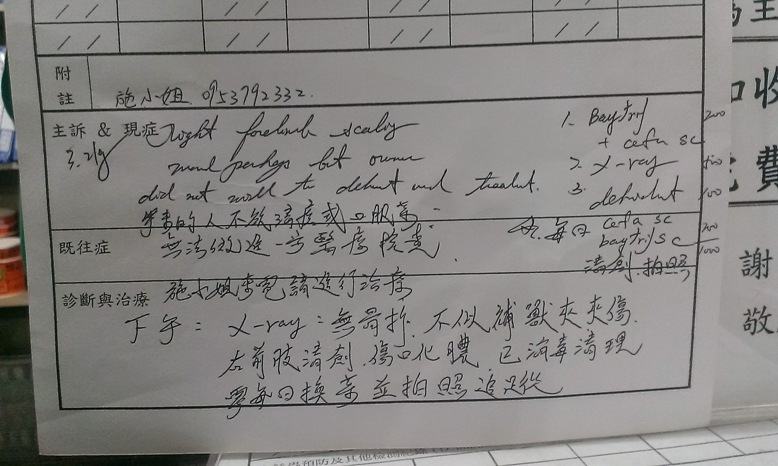 附註
施小姐 0953792332.
主訴 & 現症
3.2kg
Right forelimb scaly
wound perhaps but owner
did not wish to debrid and treatment.
的人不能清瘡或口服藥
既往症
無法做進一步醫療檢查.
1. Baytril
+ cefa sc
200
2. X-ray
3. debridement
100
每日 cefa sc
baytril sc
200
1000
清創.拍照
診斷與治療
施小姐來電請進行治療
下午: X-ray: 無骨折. 不似補獸夾夾傷.
右前肢清創.傷口化膿.已消毒清理
要每日換藥並拍照追蹤
為主
收
費
謝
敬